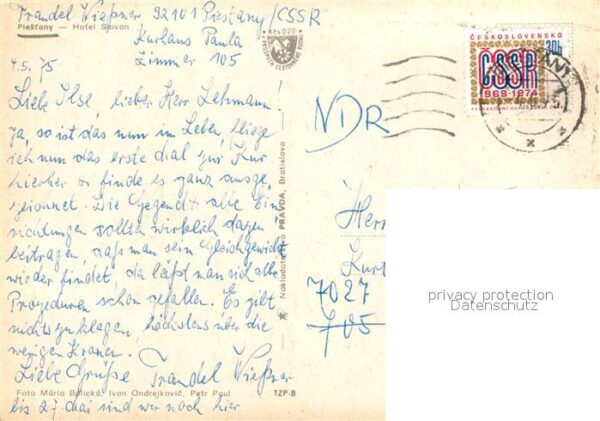 Trandel Wießner 92101 Piestany/CSSR
Piešťany — Hotel Slovan
Kurhaus Pavla
Zimmer 105
4.5.75
Liebe Ilse, lieber Herr Lehmann!
Ja, so ist das nun im Leben, fliege
ich nun das erste Mal zur Kur
hierher & finde es ganz ausge-
zeichnet. Die Gegend & alle Ein-
richtungen sollten wirklich dazu
beitragen, dass man sein Gleichgewicht
wieder findet, da läßt man sich alle
Prozeduren schon gefallen. Es gibt
nichts zu klagen, höchstens über die
wenigen Kronen.
Liebe Grüße Trandel Wießner
Foto Mária Ivon Ondrejkovič, Petr Paul
bis 27. Mai sind wir noch hier
TZP-B
Nakladateľstvo PRAVDA, Bratislava
Kčs 0,20
ČESKOSLOVENSKO
30h
ČSSR
1968-1974
NDR
Herr
Kurt
7027
705
privacy protection
Datenschutz